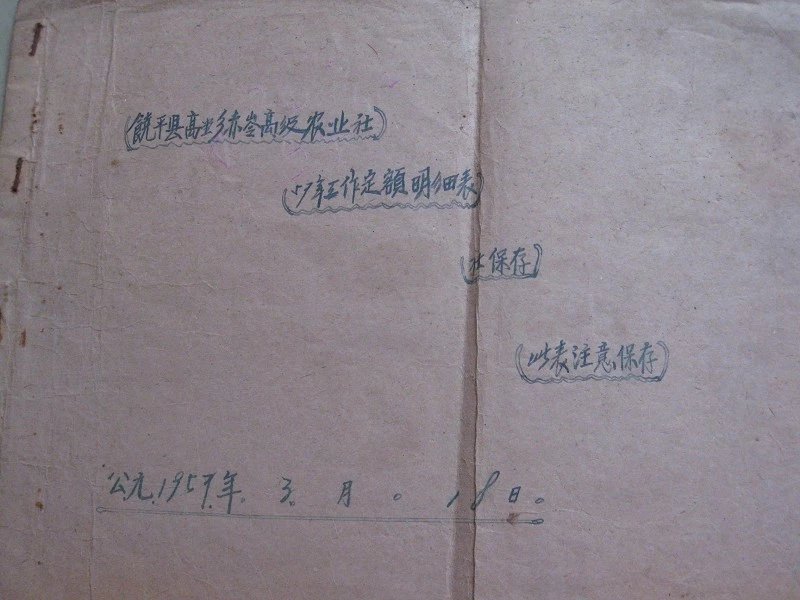 (饒平县高乡赤岺高级农业社)
(57年工作定額明细表)
(社保存)
(此表注意保存)
公元.1957.年.3.月.18日.